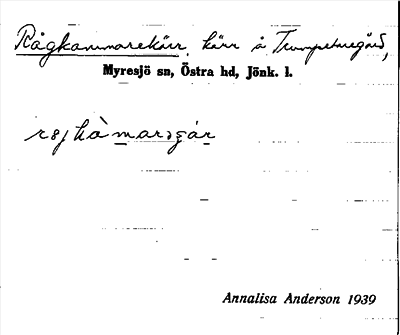 Rågkammarekärr, kärr å Trumpetaregård,
Myresjö sn, Östra hd, Jönk. l.
Annalisa Anderson 1939